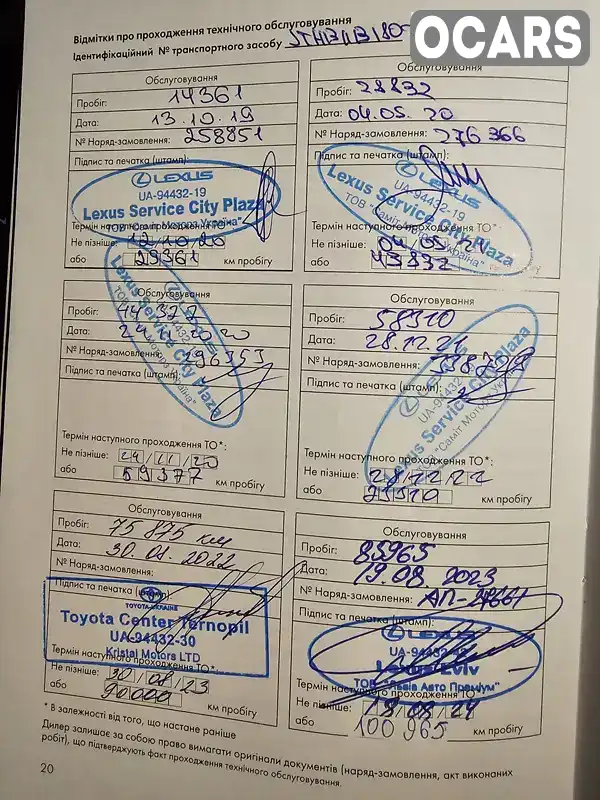 Відмітки про проходження технічного обслуговування
Ідентифікаційний № транспортного засобу
OCARS
Обслуговування
Пробіг: 14361
Дата: 13.10.19
№ Наряд-замовлення: 258851
Підпис та печатка (штамп):
LEXUS
UA-94432-19
Lexus Service City Plaza
Термін наступного проходження ТО*:
Не пізніше: 12/10/20
або 29361 км пробігу
Обслуговування
Пробіг: 28832
Дата: 04.05.20
№ Наряд-замовлення: 276366
Підпис та печатка (штамп):
LEXUS
UA-94432-19
Lexus Service City Plaza
ТОВ "Саміт Моторз Україна"
Термін наступного проходження ТО*
Не пізніше: 04/05/21
або 43832 км пробігу
Обслуговування
Пробіг: 44377
Дата:
№ Наряд-замовлення: 296353
Підпис та печатка (штамп):
Lexus Service City Plaza
Термін наступного проходження ТО*:
Не пізніше: 24/11/20
або 59377 км пробігу
Обслуговування
Пробіг: 58910
Дата: 28.12.21
№ Наряд-замовлення:
Підпис та печатка (штамп):
Lexus Service City Plaza
Термін наступного проходження ТО*:
Не пізніше: 28/12/22
або км пробігу
Обслуговування
Пробіг: 75 875 км
Дата: 30.08.2022
№ Наряд-замовлення:
Підпис та печатка (штамп):
TOYOTA-UKRAINE
Toyota Center Ternopil
UA-94432-30
Kristal Motors LTD
Термін наступного проходження ТО*:
Не пізніше: 30/08/23
або 90000 км пробігу
Обслуговування
Пробіг: 85965
Дата: 19.08.2023
№ Наряд-замовлення:
Підпис та печатка (штамп):
LEXUS
Lexus Lviv
ТОВ "Львів Авто Преміум"
Термін наступного проходження ТО*:
Не пізніше: 18/08/24
або 100 965 км пробігу
* В залежності від того, що настане раніше
Дилер залишає за собою право вимагати оригінали документів (наряд-замовлення, акт виконаних
робіт), що підтверджують факт проходження технічного обслуговування.
20